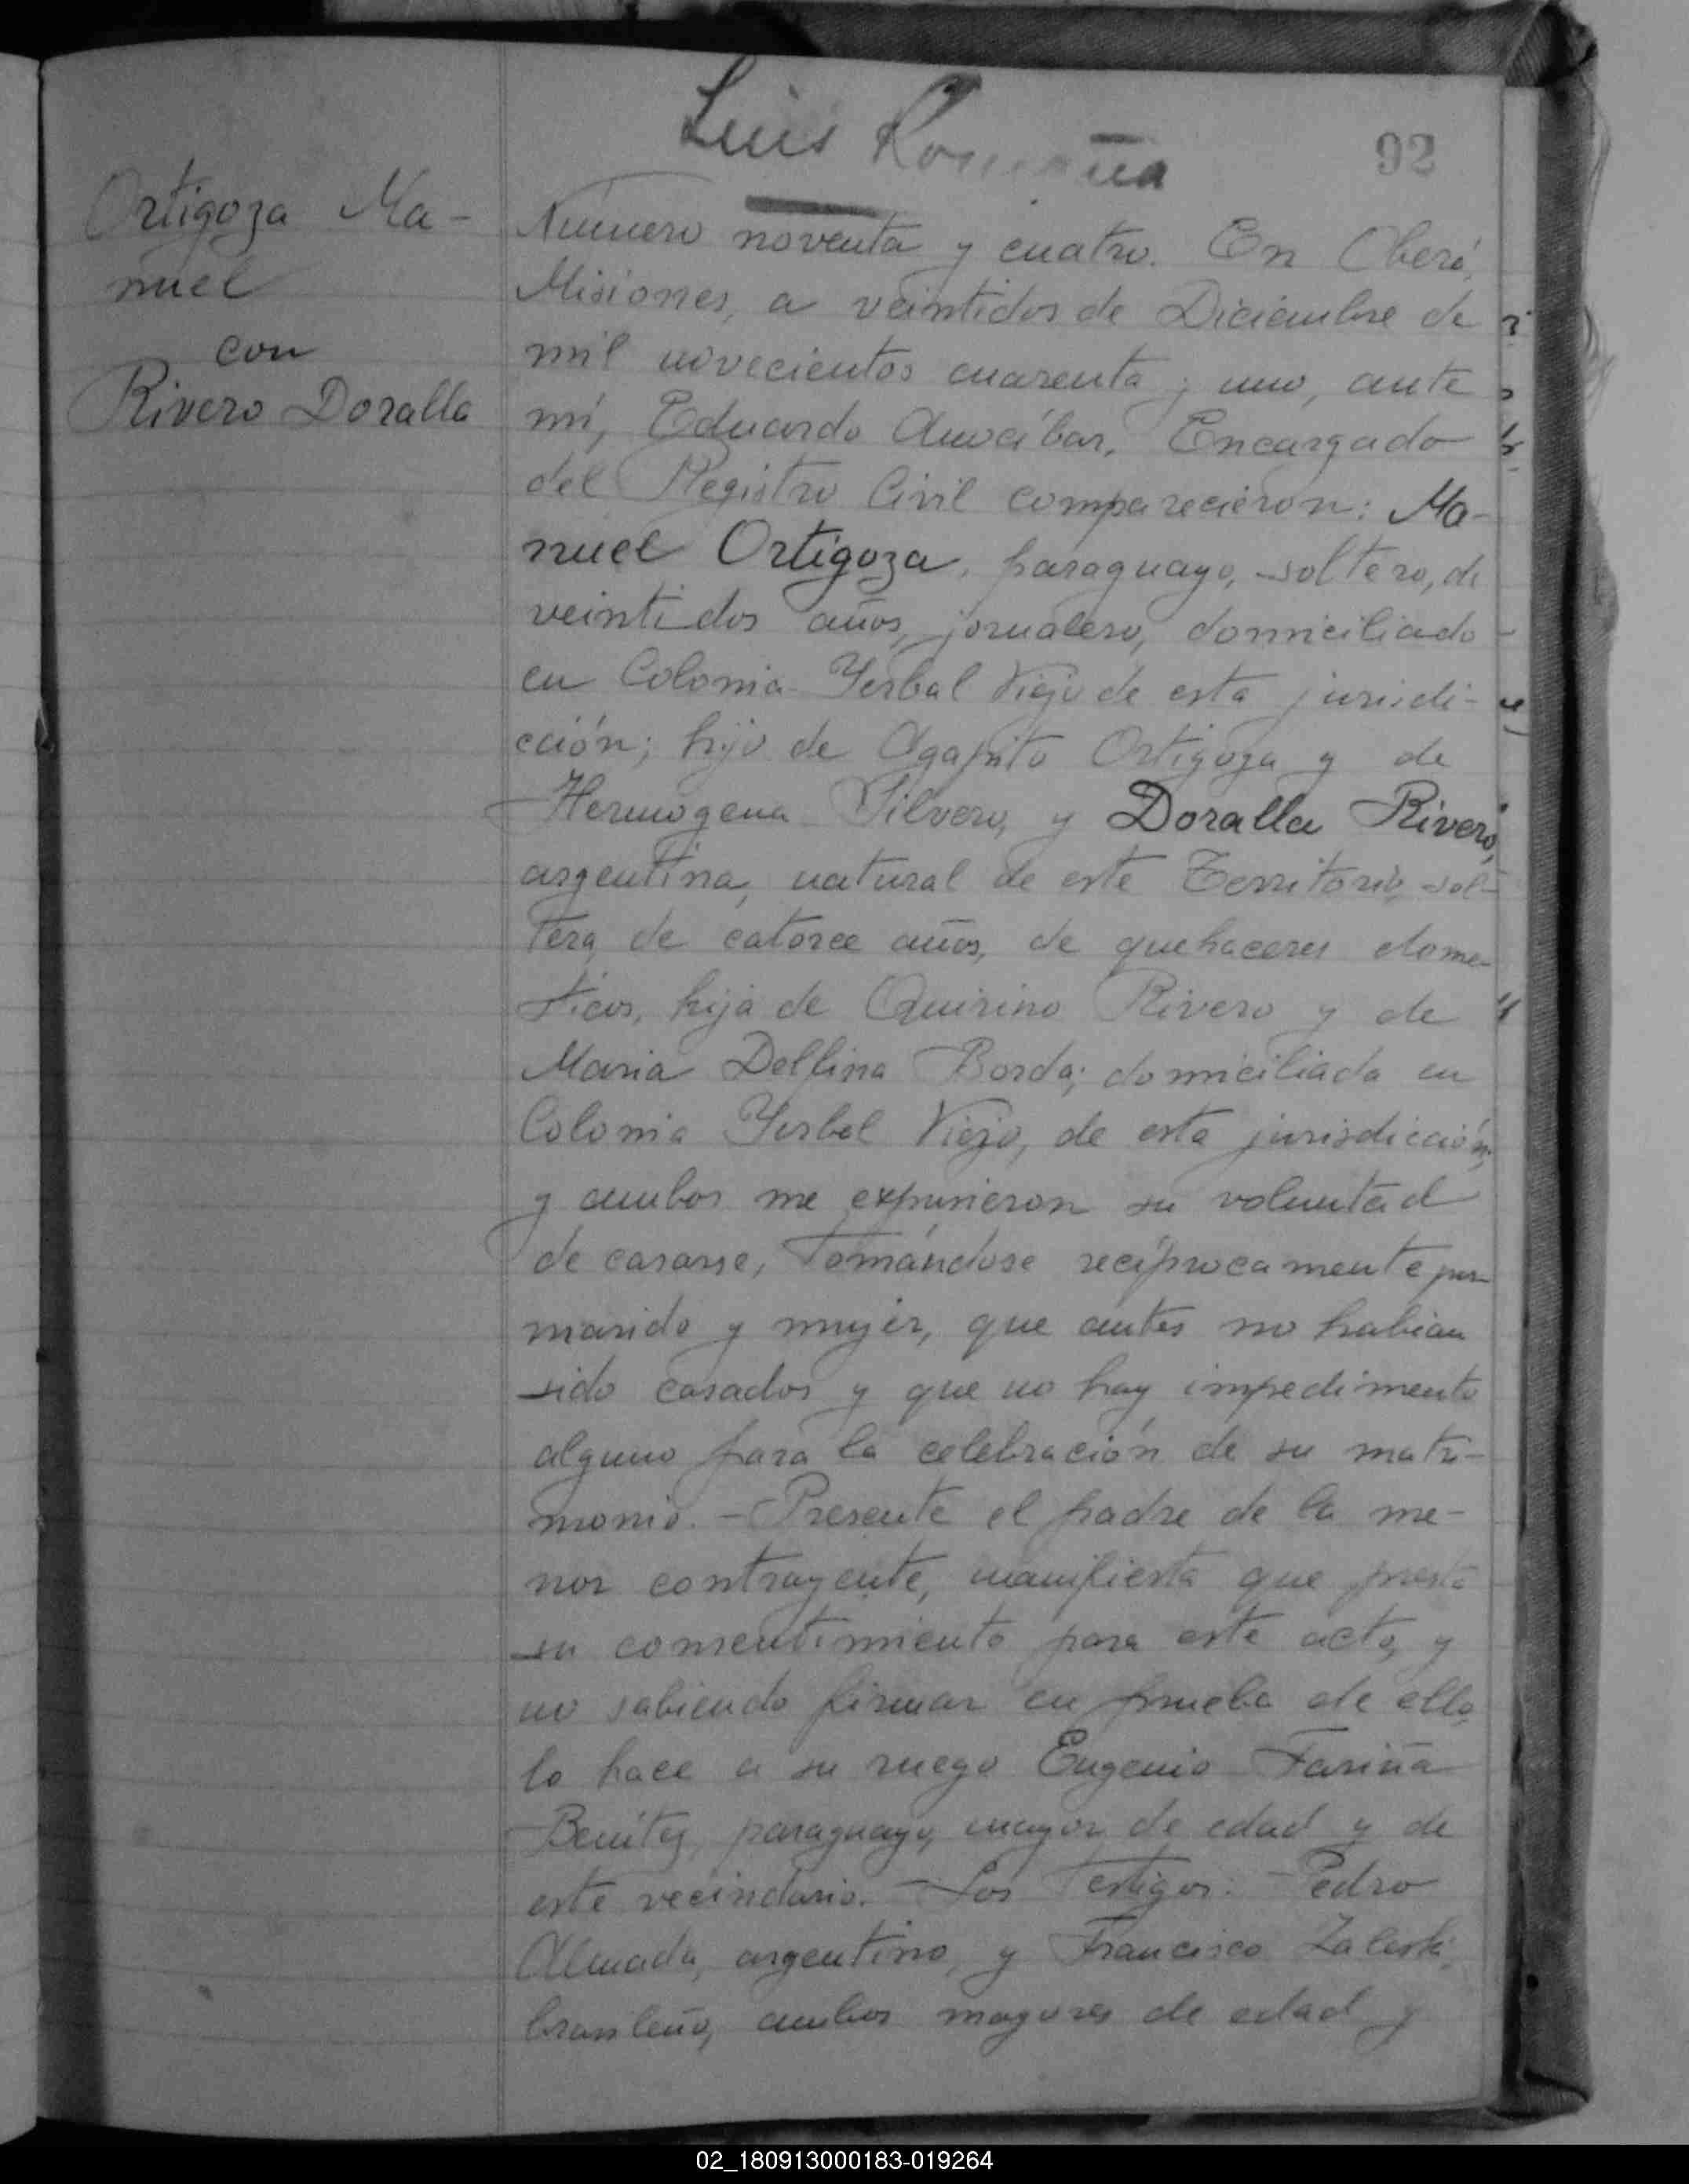 Luis
92
Ortigoza Ma-
nuel
con
Rivero Doralla
Número noventa y cuatro. En Oberá,
Misiones, a veintidos de Diciembre de
mil novecientos cuarenta y uno, ante
mí, Eduardo Encargado
del Registro Civil comparecieron: Ma-
nuel Ortigoza, paraguayo, soltero, de
veintidos años, jornalero, domiciliado
en Colonia Yerbal Viejo de esta jurisdi-
cción; hijo de Agapito Ortigoza y de
Hermogena Silvero, y Doralla Rivero,
argentina, natural de este Territorio, sol-
tera, de catorce años, de quehaceres dome-
sticos, hija de Quirino Rivero y de
Maria Delfina Borda; domiciliada en
Colonia Yerbal Viejo, de esta jurisdicción,
y ambos me expusieron su voluntad
de casarse, tomándose recíprocamente por
marido y mujer, que antes no habian
sido casados y que no hay impedimento
alguno para la celebración de su matri-
monio. - Presente el padre de la me-
nor contrayente, manifiesta que presta
su consentimiento para este acto, y
no sabiendo firmar en prueba de ello,
lo hace a su ruego Eugenio Fariña
Benitez, paraguayo, mayor de edad y de
este vecindario. - Los Testigos: Pedro
Almada, argentino, y Francisco Zaleski,
brasileño, ambos mayores de edad y
02_180913000183-019264